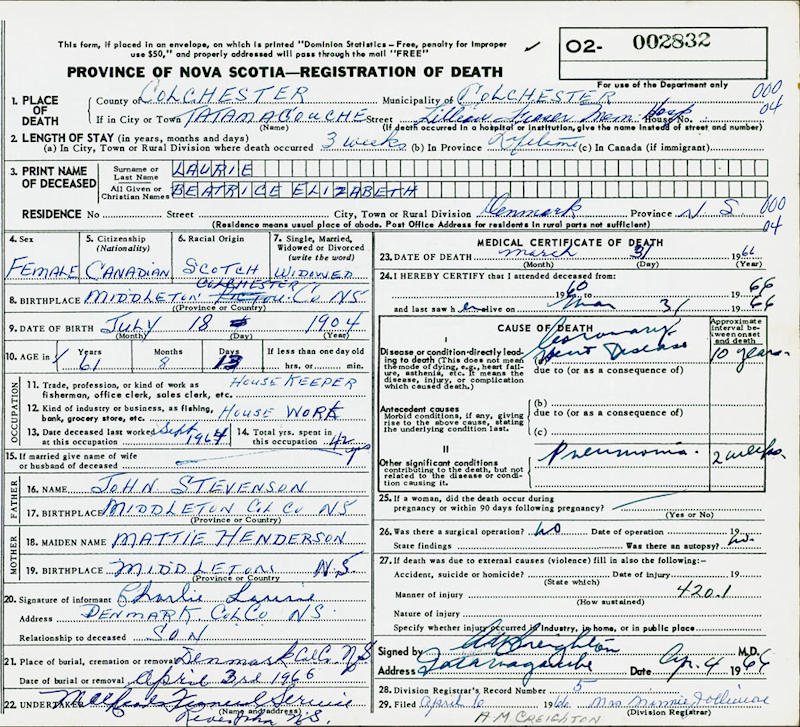 This form, if placed in an envelope, on which is printed "Dominion Statistics—Free, penalty for improper
use $50," and properly addressed will pass through the mail "FREE"
✓
O2- 002832
PROVINCE OF NOVA SCOTIA—REGISTRATION OF DEATH
For use of the Department only
1. PLACE OF DEATH
County of COLCHESTER Municipality of COLCHESTER 000
If in City or Town TATAMAGOUCHE Street Lillian Fraser Mem Hosp House No. 04
(Name) (If death occurred in a hospital or institution, give the name instead of street and number)
2. LENGTH OF STAY (in years, months and days)
(a) In City, Town or Rural Division where death occurred 3 weeks (b) In Province Lifetime (c) In Canada (if immigrant)
3. PRINT NAME OF DECEASED
Surname or Last Name LAURIE
All Given or Christian Names BEATRICE ELIZABETH
RESIDENCE No Street City, Town or Rural Division Denmark Province N S 000
(Residence means usual place of abode. Post Office Address for residents in rural parts not sufficient) 04
4. Sex FEMALE
5. Citizenship (Nationality) CANADIAN
6. Racial Origin SCOTCH
7. Single, Married, Widowed or Divorced (write the word) WIDOWED
COLCHESTER
8. BIRTHPLACE MIDDLETON PICTOU Co NS
(Province or Country)
9. DATE OF BIRTH July 18 1904
(Month) (Day) (Year)
10. AGE in Years 61 Months 8 Days 13 If less than one day old
hrs. or min.
OCCUPATION
11. Trade, profession, or kind of work as
fisherman, office clerk, sales clerk, etc. HOUSE KEEPER
12. Kind of industry or business, as fishing,
bank, grocery store, etc. HOUSE WORK
13. Date deceased last worked at this occupation Sept 1964
14. Total yrs. spent in this occupation 42 yrs
15. If married give name of wife
or husband of deceased
FATHER
16. NAME JOHN STEVENSON
17. BIRTHPLACE MIDDLETON COL CO NS
(Province or Country)
MOTHER
18. MAIDEN NAME MATTIE HENDERSON
19. BIRTHPLACE MIDDLETON N.S.
(Province or Country)
20. Signature of informant Charlie Laurie
Address DENMARK COL CO NS
Relationship to deceased SON
21. Place of burial, cremation or removal Denmark Col Co. N.S
Date of burial or removal April 3rd 1966
22. UNDERTAKER Funeral Service
(Name and address)
N.S.
MEDICAL CERTIFICATE OF DEATH
23. DATE OF DEATH March 31 1966
(Month) (Day) (Year)
24. I HEREBY CERTIFY that I attended deceased from:
1960 to 1966
and last saw her alive on Mar 31 1966
CAUSE OF DEATH
Approximate interval between onset and death
I
Disease or condition directly leading to death (This does not mean the mode of dying, e.g., heart failure, asthenia, etc. It means the disease, injury, or complication which caused death.)
Coronary Heart Disease 10 years.
due to (or as a consequence of)
Antecedent causes
Morbid conditions, if any, giving rise to the above cause, stating the underlying condition last.
(b)
due to (or as a consequence of)
(c)
II
Other significant conditions
contributing to the death, but not related to the disease or condition causing it.
Pneumonia. 2 weeks.
25. If a woman, did the death occur during
pregnancy or within 90 days following pregnancy?
(Yes or No)
26. Was there a surgical operation? No Date of operation 19
State findings Was there an autopsy? No.
27. If death was due to external causes (violence) fill in also the following:—
Accident, suicide or homicide? Date of injury 19
(State which)
Manner of injury 420.1
(How sustained)
Nature of injury
Specify whether injury occurred in industry, in home, or in public place
Signed by Creighton M.D.
Address Tatamagouche Apr. 4 1966
28. Division Registrar's Record Number 5
29. Filed April 6 1966 Mrs Minnie
(Division Registrar)
A M CREIGHTON